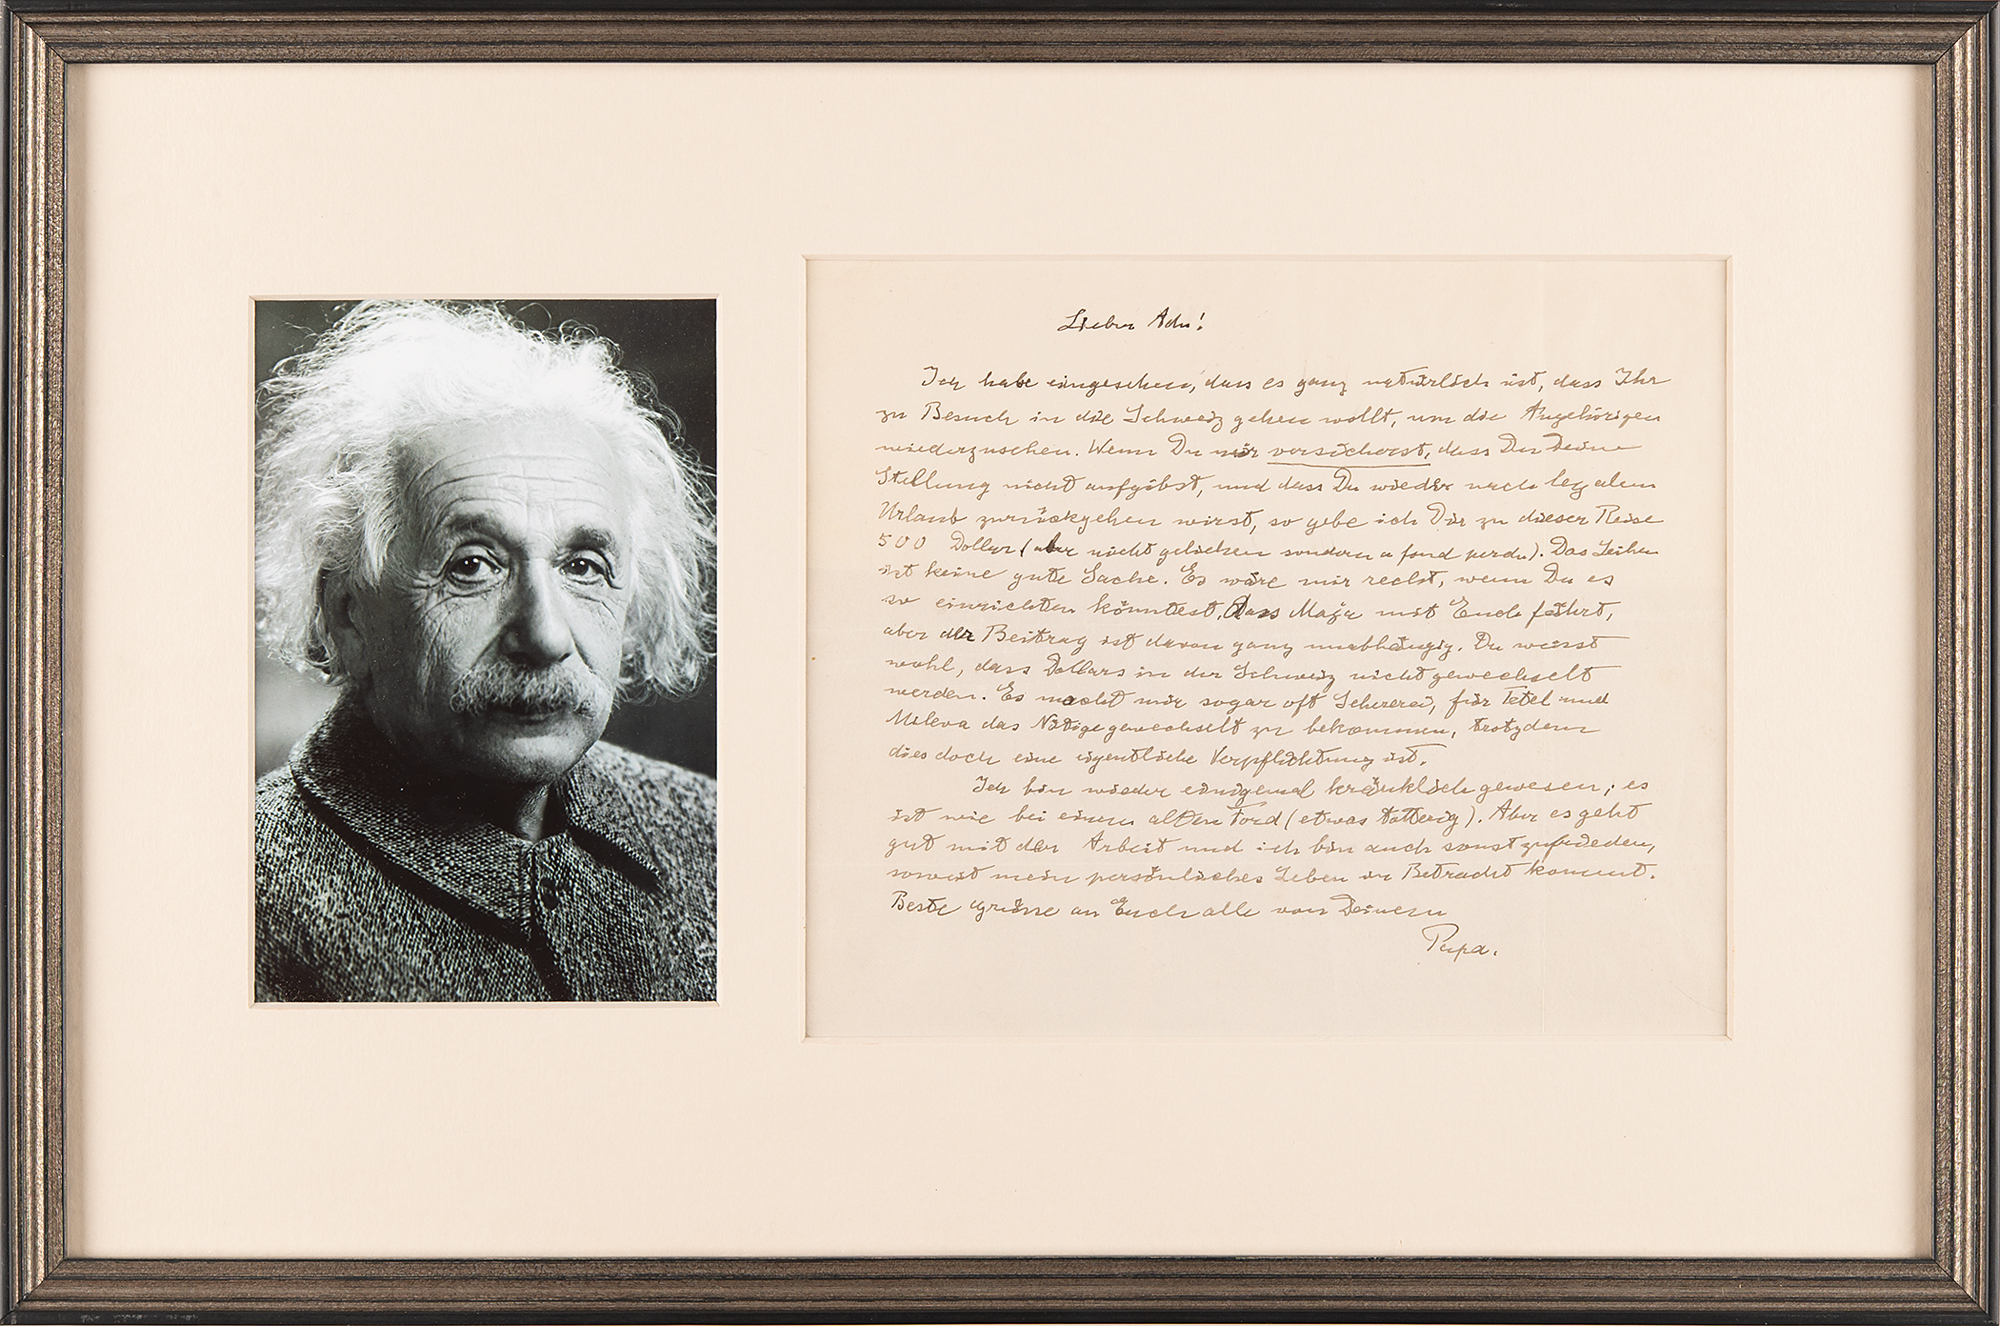 Lieber Adu!
Ich habe eingesehen, dass es ganz natürlich ist, dass Ihr
zu Besuch in die Schweiz gehen wollt, um die Angehörigen
wiederzusehen. Wenn Du mir versicherst, dass Du Deine
Stellung nicht aufgibst, und dass Du wieder nach legalem
Urlaub zurückgehen wirst, so gebe ich Dir zu dieser Reise
500 Dollar (aber nicht geliehen sondern a fond perdu). Das Leihen
ist keine gute Sache. Es wäre mir recht, wenn Du es
so einrichten könntest, dass Maja mit Euch fährt,
aber der Beitrag ist davon ganz unabhängig. Du weisst
wohl, dass Dollars in der Schweiz nicht gewechselt
werden. Es macht mir sogar oft Schererei, für Tetel und
Mileva das Nötige gewechselt zu bekommen, trotzdem
dies doch eine eigentliche Verpflichtung ist.
Ich bin wieder einigemal kränklich gewesen; es
ist wie bei einem alten Ford (etwas tatterig). Aber es geht
gut mit der Arbeit und ich bin auch sonst zufrieden,
soweit mein persönliches Leben in Betracht kommt.
Beste Grüsse an Euch alle von Deinem
Papa.